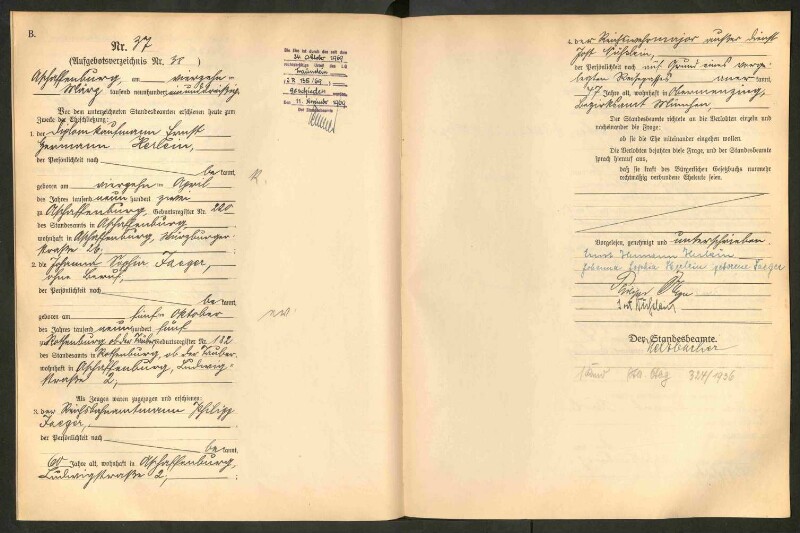 B.
Nr. 37
(Aufgebotsverzeichnis Nr. 38)
Aschaffenburg, am vierzehn-
März tausend neunhundert neununddreißig.
Vor dem unterzeichneten Standesbeamten erschienen heute zum
Zwecke der Eheschließung:
1. der Diplomkaufmann Ernst
Hermann Herlein,
der Persönlichkeit nach
bekannt,
geboren am vierzehn- April
des Jahres tausend neunhundert zwei
zu Aschaffenburg, Geburtsregister Nr. 220
des Standesamts in Aschaffenburg,
wohnhaft in Aschaffenburg, Würzburger-
straße 26;
2. die Johanna Sophia Jaeger,
ohne Beruf,
der Persönlichkeit nach
bekannt,
geboren am fünf- Oktober
des Jahres tausend neunhundert fünf
zu Rothenburg ob der Tauber Geburtsregister Nr. 182
des Standesamts in Rothenburg, ob der Tauber
wohnhaft in Aschaffenburg, Ludwig-
straße 2,
Als Zeugen waren zugezogen und erschienen:
3. der Reichsbahnamtmann Philipp
Jaeger,
der Persönlichkeit nach
bekannt,
60 Jahre alt, wohnhaft in Aschaffenburg,
Ludwigstraße 2,
Die Ehe ist durch das seit dem
24. Oktober 1969
rechtskräftige Urteil des LG
geschieden worden.
Den 11. 1969
Der Standesbeamte
4. der Reichswehrmajor außer Dienst
Jost Kühlein,
der Persönlichkeit nach auf Grund eines vorge-
legten Reisepasses anerkannt,
47 Jahre alt, wohnhaft in Obermenzing,
Bezirksamt München,
Der Standesbeamte richtete an die Verlobten einzeln und
nacheinander die Frage:
ob sie die Ehe miteinander eingehen wollen.
Die Verlobten bejahten diese Frage, und der Standesbeamte
sprach hierauf aus,
daß sie kraft des Bürgerlichen Gesetzbuchs nunmehr
rechtmäßig verbundene Eheleute seien.
Vorgelesen, genehmigt und unterschrieben
Ernst Hermann Herlein
Johanna Sophia Herlein geborene Jaeger
Der Standesbeamte.
324/1936